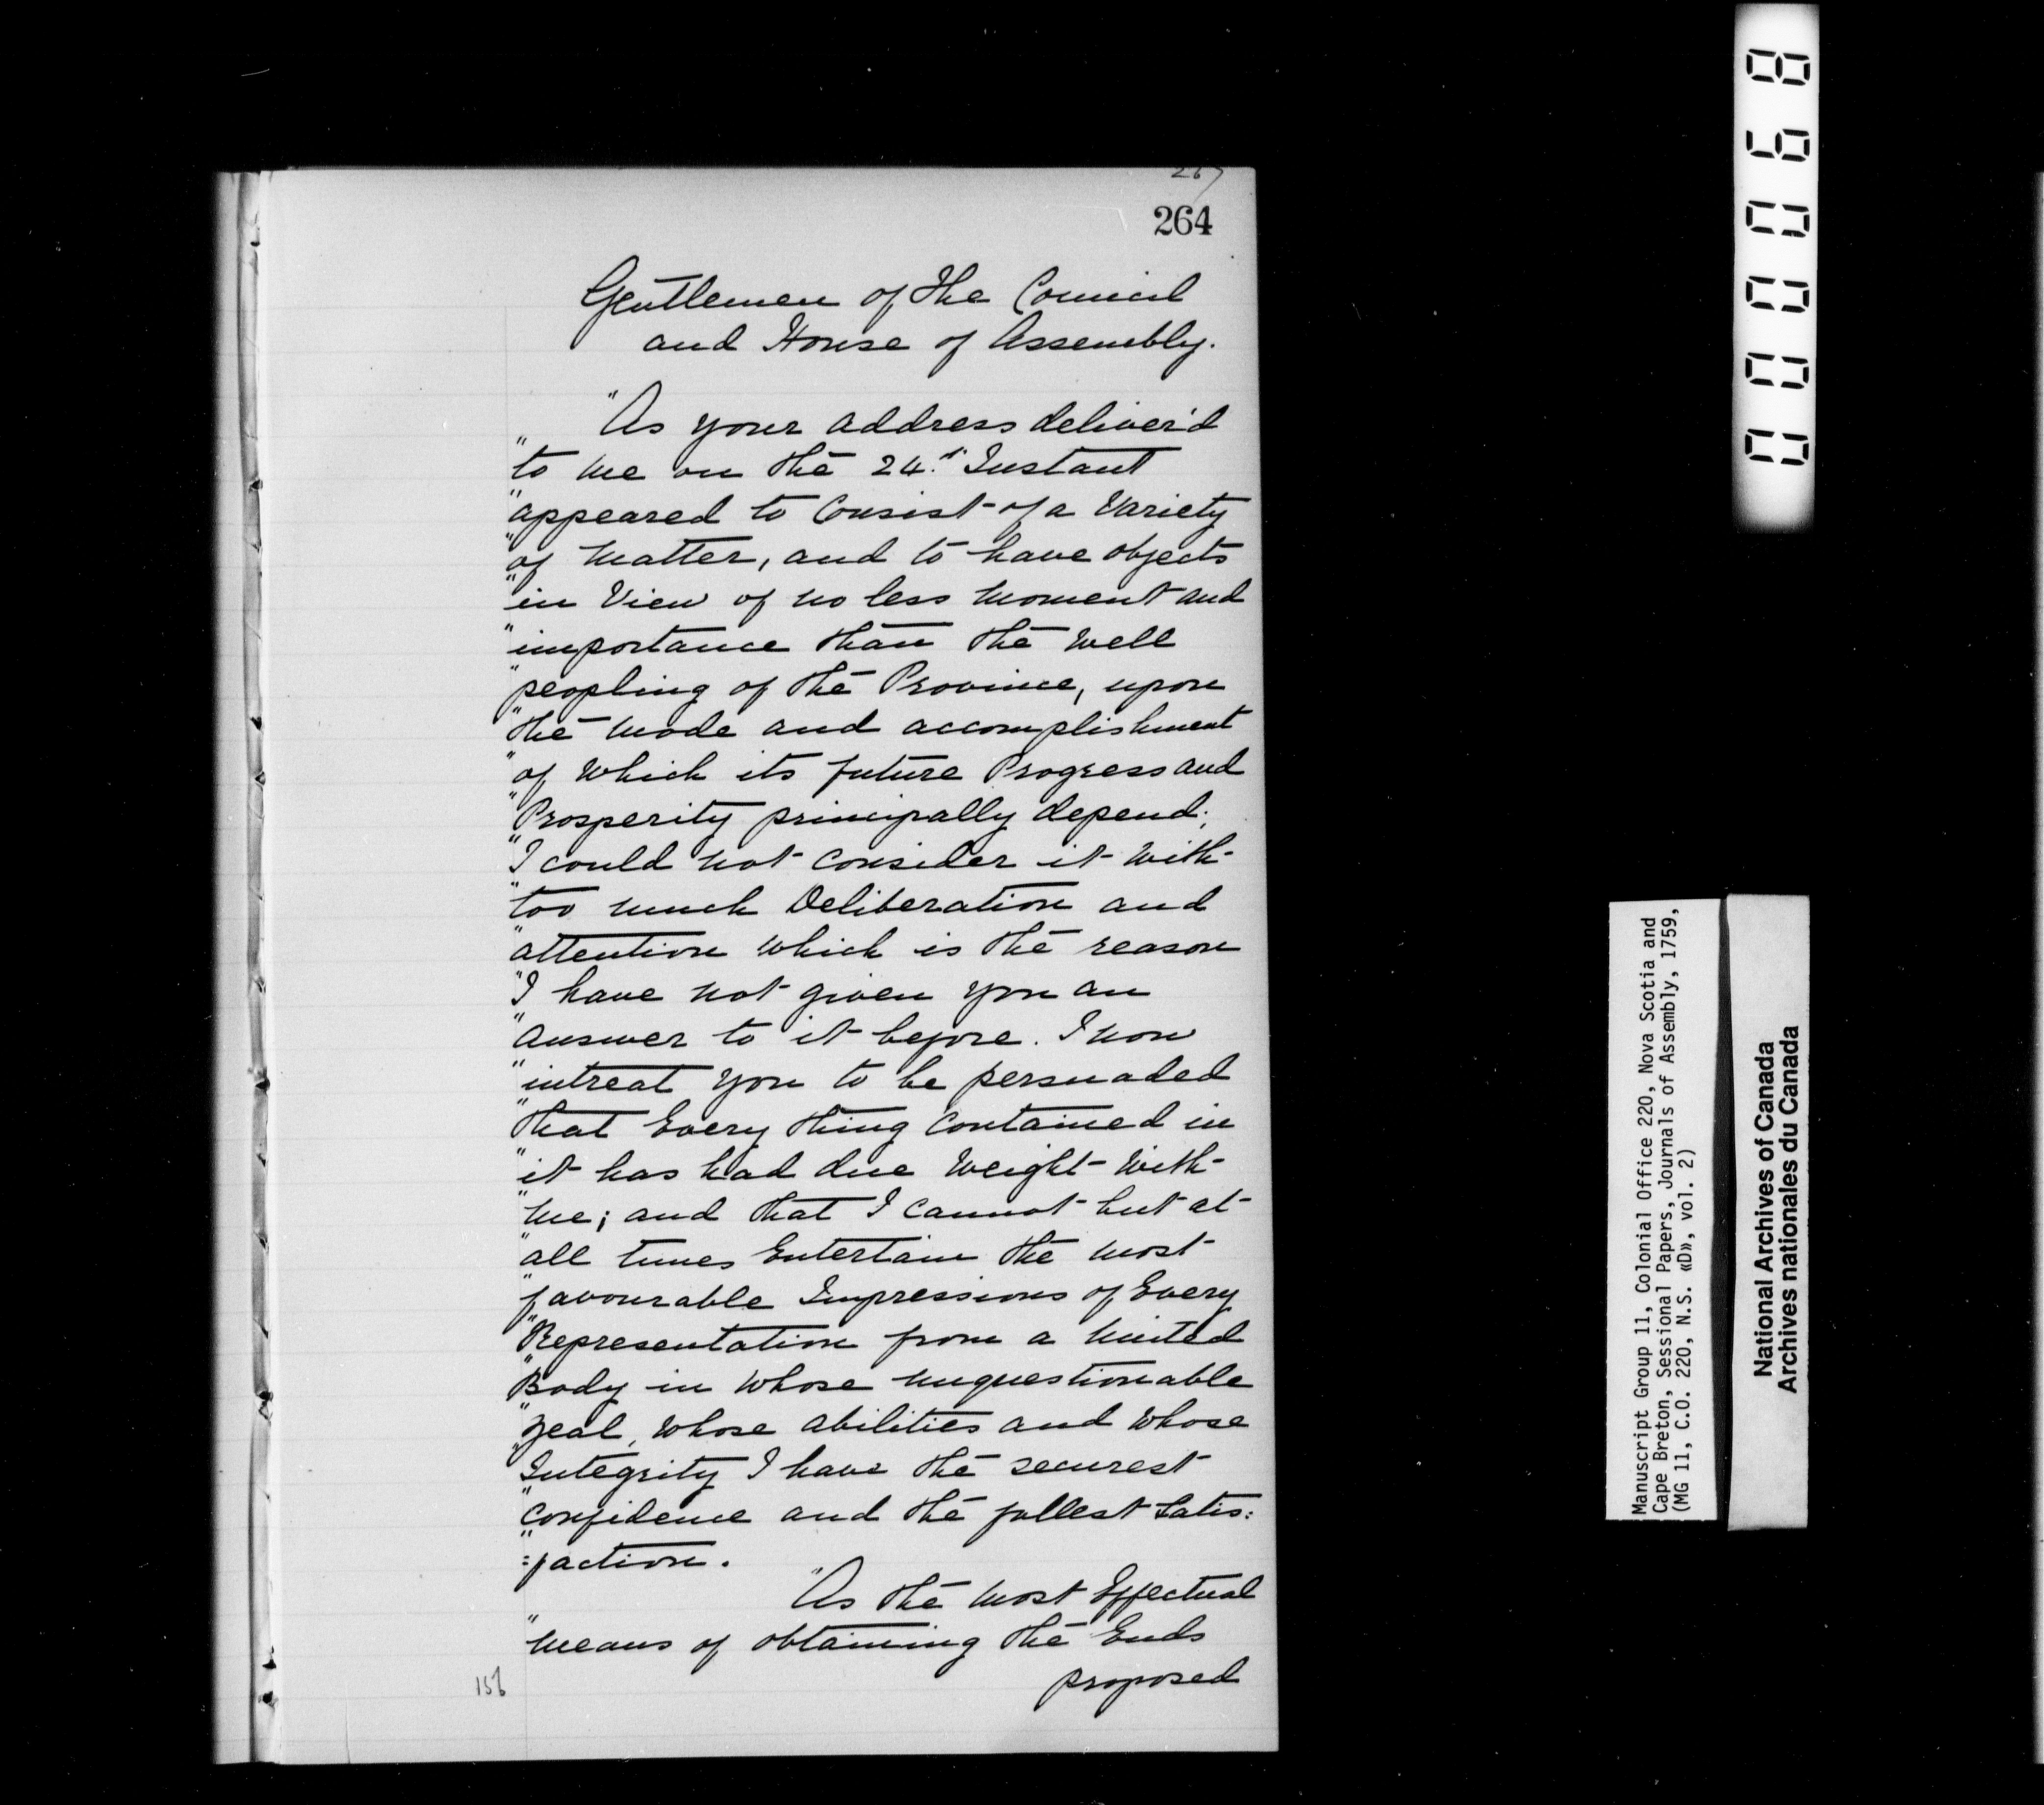 267
264
Gentlemen of the Council
and House of Assembly.
"As your address deliver'd
"to me on the 24.th Instant
"appeared to Consist of a Variety
"of matter, and to have objects
"in View of no less moment and
"importance than the well
"peopling of the Province, upon
"the mode and accomplishment
"of which its future Progress and
"Prosperity principally depend;
"I could not consider it with
"too much Deliberation and
"attention which is the reason
"I have not given you an
"answer to it before. I now
"intreat you to be persuaded
"that Every thing Contained in
"it has had due Weight with
"me; and that I cannot but at
"all times Entertain the most
"favourable Impressions of Every
"Representation from a United
"Body in whose unquestionable
"zeal, whose abilities and whose
"Integrity I have the securest
"Confidence and the fullest Satis:
":faction.
"As the most Effectual
"means of obtaining the Ends
proposed
156
000068
Manuscript Group 11, Colonial Office 220, Nova Scotia and
Cape Breton, Sessional Papers, Journals of Assembly, 1759,
(MG 11, C.O. 220, N.S. «D», vol. 2)
National Archives of Canada
Archives nationales du Canada